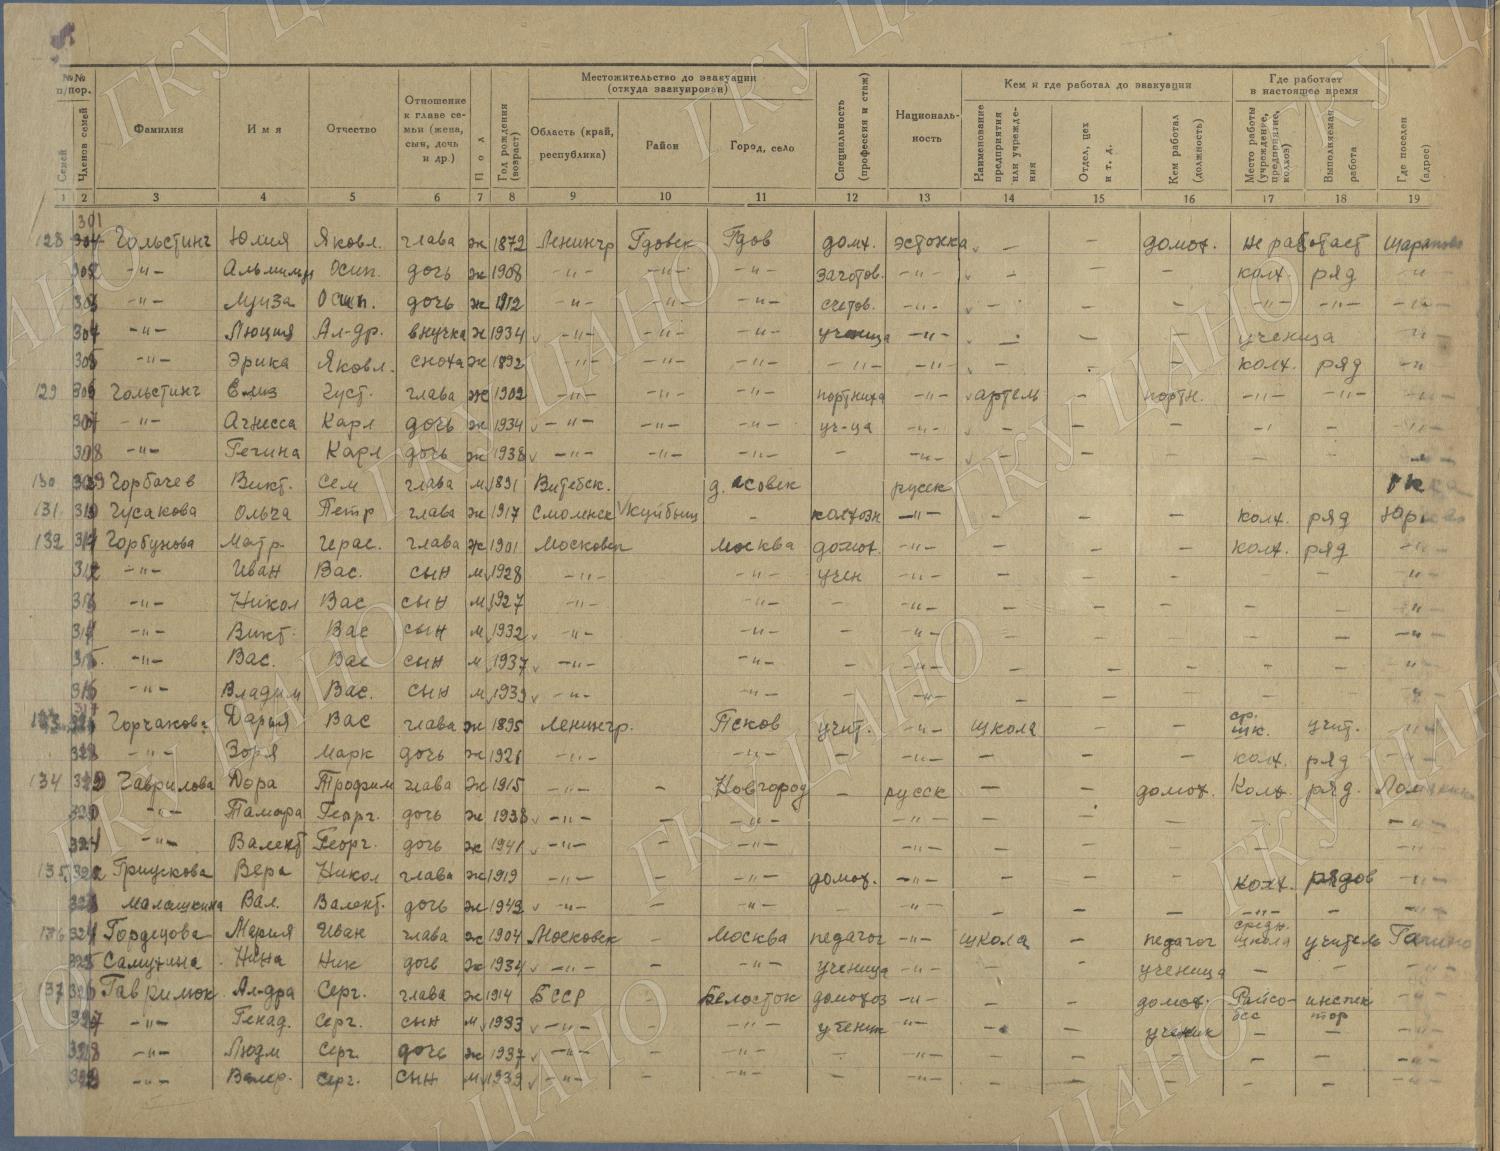 №№ п/пор.
Семей
Членов семей
Фамилия
Имя
Отчество
Отношение к главе семьи (жена, сын, дочь и др.)
Пол
Год рождения (возраст)
Местожительство до эвакуации (откуда эвакуирован)
Область (край, республика)
Район
Город, село
Специальность (профессия и стаж)
Националь-ность
Кем и где работал до эвакуации
Наименование предприятия или учрежде-ния
Отдел, цех и т. д.
Кем работал (должность)
Где работает в настоящее время
Место работы (учреждение, предприятие, колхоз)
Выполняемая работа
Где поселен (адрес)
1 2 3 4 5 6 7 8 9 10 11 12 13 14 15 16 17 18 19
301
128 Гольстинг Юлия Яковл. глава ж 1872 Ленингр Гдовск Гдов домх. эстонка - - домох. не работает
-"- Осип. дочь ж 1908 -"- -"- -"- заготов. -"- - - - колх. ряд -"-
-"- Луиза Осип. дочь ж 1912 -"- -"- -"- счетов. -"- - - - -"- -"- -"-
304 -"- Люция Ал-др. внучка ж 1934 -"- -"- -"- ученица -"- - - - ученица -"-
305 -"- Эрика Яковл. сноха ж 1892 -"- -"- -"- -"- -"- - - - колх. ряд -"-
129 306 Гольстинг Елиз Густ. глава ж 1902 -"- -"- -"- портниха -"- артель - портн. -"- -"- -"-
307 -"- Агнесса Карл дочь ж 1934 -"- -"- -"- уч-ца -"- - - - -"- - -"-
308 -"- Регина Карл дочь ж 1938 -"- -"- -"- - -"- - - - - -
130 309 Горбачев Викт. Сем глава м 1891 Витебск. русск
131 310 Гусакова Ольга Петр глава ж 1917 Смоленск Куйбыш - колхозн -"- колх. ряд
132 311 Горбунова Матр. Герас. глава ж 1901 Московск Москва домох. -"- - - - колх. ряд -"-
312 -"- Иван Вас. сын м 1928 -"- -"- учен -"- - - - - -"-
313 -"- Никол Вас сын м 1927 -"- -"- - -"- - - - - - -"-
314 -"- Викт. Вас сын м 1932 -"- -"- - -"- - - - - - -"-
315 -"- Вас. Вас сын м 1937 -"- -"- - -"- - - - - - -"-
316 -"- Владим Вас. сын м 1939 -"- -"- - -"- - - - - - -"-
317
133 Горчакова Дарья Вас глава ж 1895 Ленингр. Псков учит. -"- школа - - ср. шк. учит. -"-
-"- Зоря Марк дочь ж 1926 -"- -"- - -"- - - - колх. ряд -"-
134 Гаврилова Дора Трофим глава ж 1915 -"- - Новгород - русск - - домох. Колх. ряд.
320 -"- Тамара Георг. дочь ж 1938 -"- - -"- -"- - - - - - -"-
321 -"- Валент Георг. дочь ж 1941 -"- -"- -"- - - - - - -"-
135 322 Вера Никол глава ж 1919 -"- - -"- домох. -"- - - - колх. рядов -"-
323 Малашкина Вал. Валент. дочь ж 1942 -"- - -"- - -"- - - - -"- - -"-
136 324 Гордецова Мария Иван глава ж 1904 Московск - Москва педагог -"- школа - педагог средн. школа учитель
325 Нина Ник дочь ж 1934 -"- - -"- ученица -"- - - ученица - - -"-
137 326 Гаврилюк Ал-дра Серг. глава ж 1914 БССР - Белосток домохоз -"- домох. Райсо-бес инспектор -"-
327 -"- Генад. Серг. сын м 1933 -"- -"- ученик -"- - - ученик - - -"-
328 -"- Людм Серг. дочь ж 1937 -"- - -"- - -"- - - - - - -"-
329 -"- Валер. Серг. сын м 1939 -"- - -"- - -"- - - - - - -"-
ГКУ ЦАНО